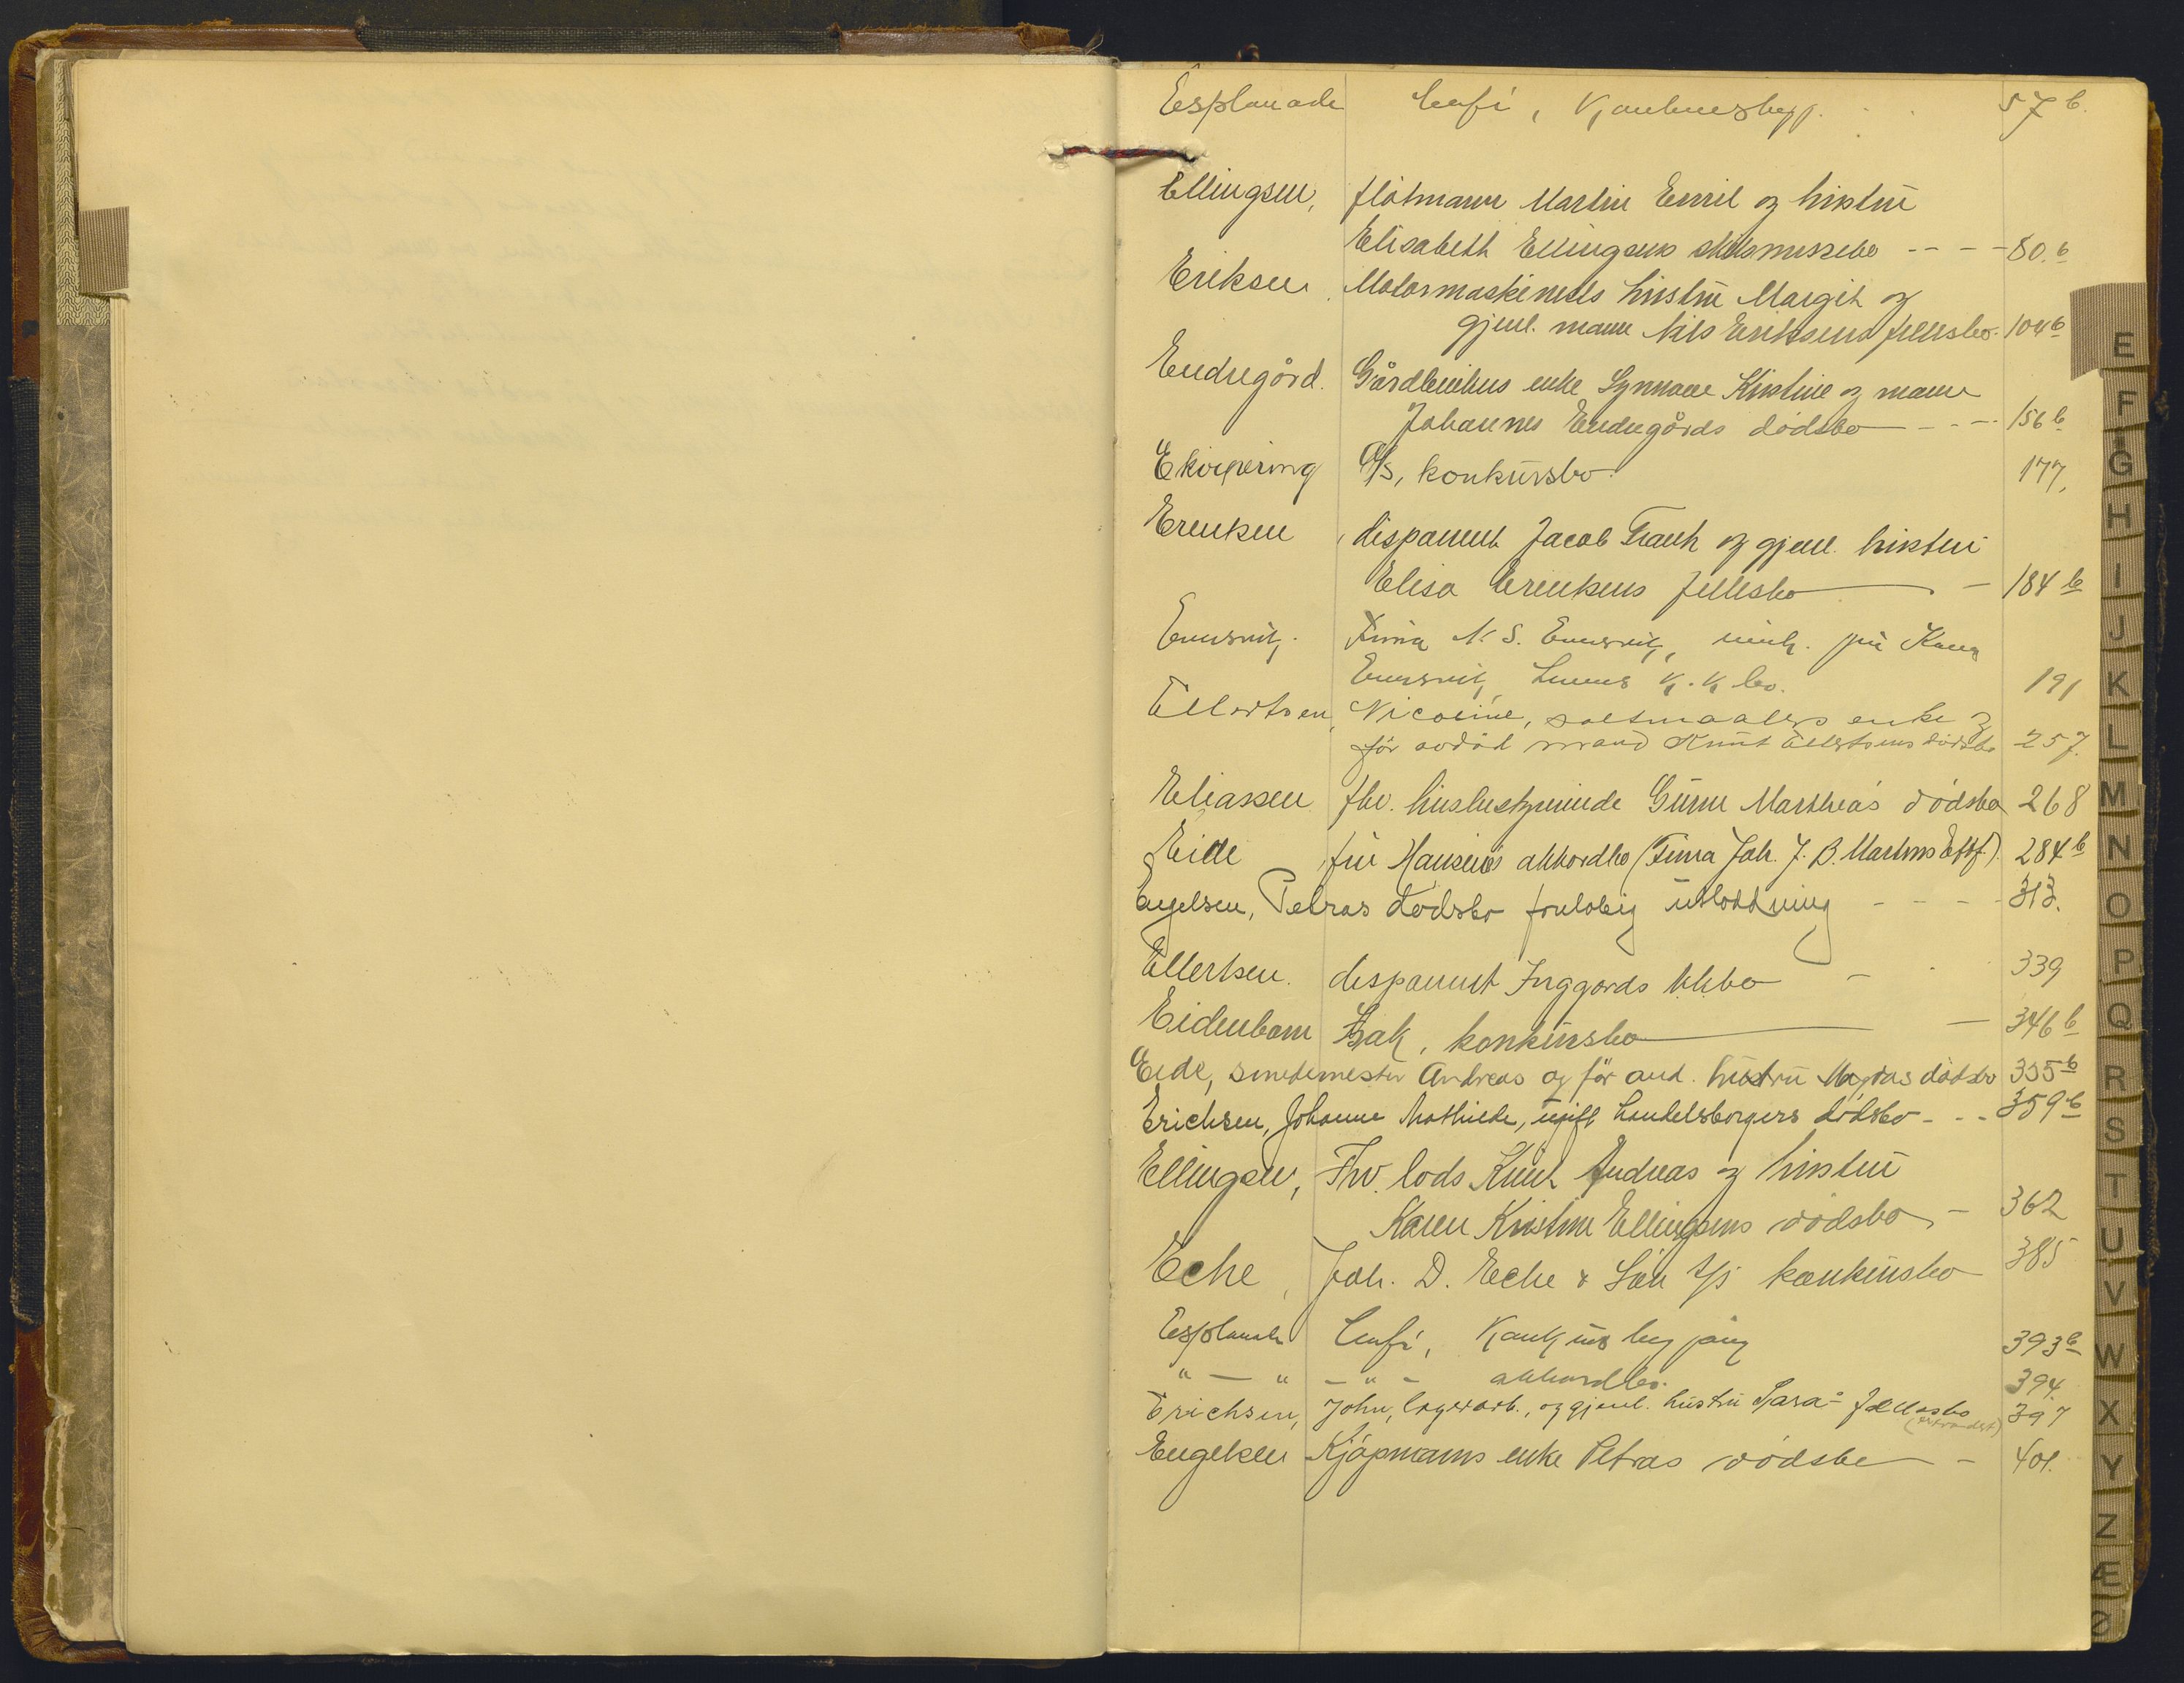 Esplanade Café, Konkursbegj. 57 b.
Ellingsen, flåtmann Martin Emil og hustru
Elisabeth Ellingsens skilsmissebo - - - 80.b
Eriksen Motormaskinists hustru Margit og
gjenl. mann Nils Eriksens fellesbo. 104b
Endregård. Gårdbrukers enke Synnøve Kristine og mann
Johannes Endregårds dødsbo - - - 156 b
Ekvipering A/S, konkursbo 177,
Erensen, disponent Jacob Frank og gjenl. hustru
Elisa Erensens fellesbo - 184 b
Firma N. S.
bo. 191
Ellertsen, Nicoline, saltmaalers enke og
før avdød mand Knut Ellertsens dødsbo 257.
Eliassen fhv. husbestyrerinde Gurine Marthea's dødsbo 268
Eide, fru Hansine's akkordbo (Firma Joh. J. B. Martins Eftf.). 284 b
Engelsen, Petras dødsbo foreløbig utloddning - - - - 313.
Ellertsen. disponent Inggards bo - 339
Eidenbom Isak, konkursbo - 346 b
Eide, smedemester Andreas og før avd. hustru Magdas dødsbo 355 b
Erichsen, Johanne Mathilde, ugift handelsborgers dødsbo - - - 359 b
Ellingsen, Fhv. lods Knut Andreas og hustru
Karen Kristine Ellingsens dødsbo, - 362
Eche, Joh. D. Eche & Søn A/S konkursbo 385
Esplanade Café, Konkursbegjæring 393 b
" — " - " - akkordbo. 394.
Erichsen, John, lagerarb., og gjenl. hustru Sara's fællesbo 397
Engelsen Kjøpmanns enke Petras dødsbo - 401.
E
F
G
H
I
J
K
L
M
N
O
P
Q
R
S
T
U
V
W
X
Y
Z
Æ